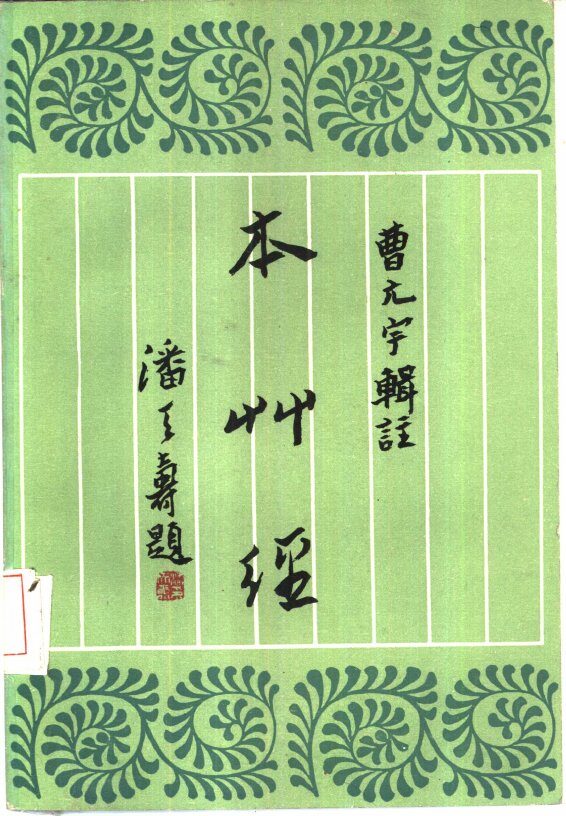 曹元宇輯註
本艸經
潘天壽題